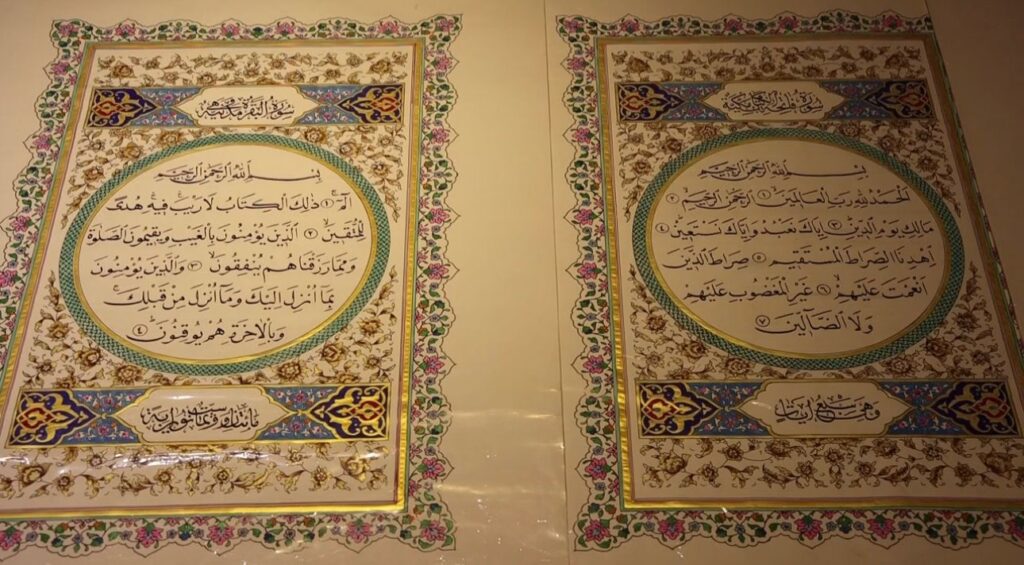 سورة فاتحة الكتاب مكية
بِسْمِ اللّٰهِ الرَّحْمٰنِ الرَّحِيمِ
اَلْحَمْدُ لِلّٰهِ رَبِّ الْعَالَمِينَ ١ اَلرَّحْمٰنِ الرَّحِيمِ ٢
مَالِكِ يَوْمِ الدِّينِ ٣ اِيَّاكَ نَعْبُدُ وَاِيَّاكَ نَسْتَعِينُ ٤
اِهْدِنَا الصِّرَاطَ الْمُسْتَقِيمَ ٥ صِرَاطَ الَّذِينَ
اَنْعَمْتَ عَلَيْهِمْ ٦ غَيْرِ الْمَغْضُوبِ عَلَيْهِمْ
وَلَا الضَّٓالِّينَ ٧
وهي سبع آيات
سورة البقرة مدنية وهي
بِسْمِ اللّٰهِ الرَّحْمٰنِ الرَّحِيمِ
الٓمٓ ١ ذٰلِكَ الْكِتَابُ لَا رَيْبَ فِيهِ هُدًى
لِلْمُتَّقِينَ ٢ اَلَّذِينَ يُؤْمِنُونَ بِالْغَيْبِ وَيُقِيمُونَ الصَّلٰوةَ
وَمِمَّا رَزَقْنَاهُمْ يُنْفِقُونَ ٣ وَالَّذِينَ يُؤْمِنُونَ
بِمَٓا اُنْزِلَ اِلَيْكَ وَمَٓا اُنْزِلَ مِنْ قَبْلِكَ
وَبِالْاٰخِرَةِ هُمْ يُوقِنُونَ ٤
مائتان وست وثمانون آية